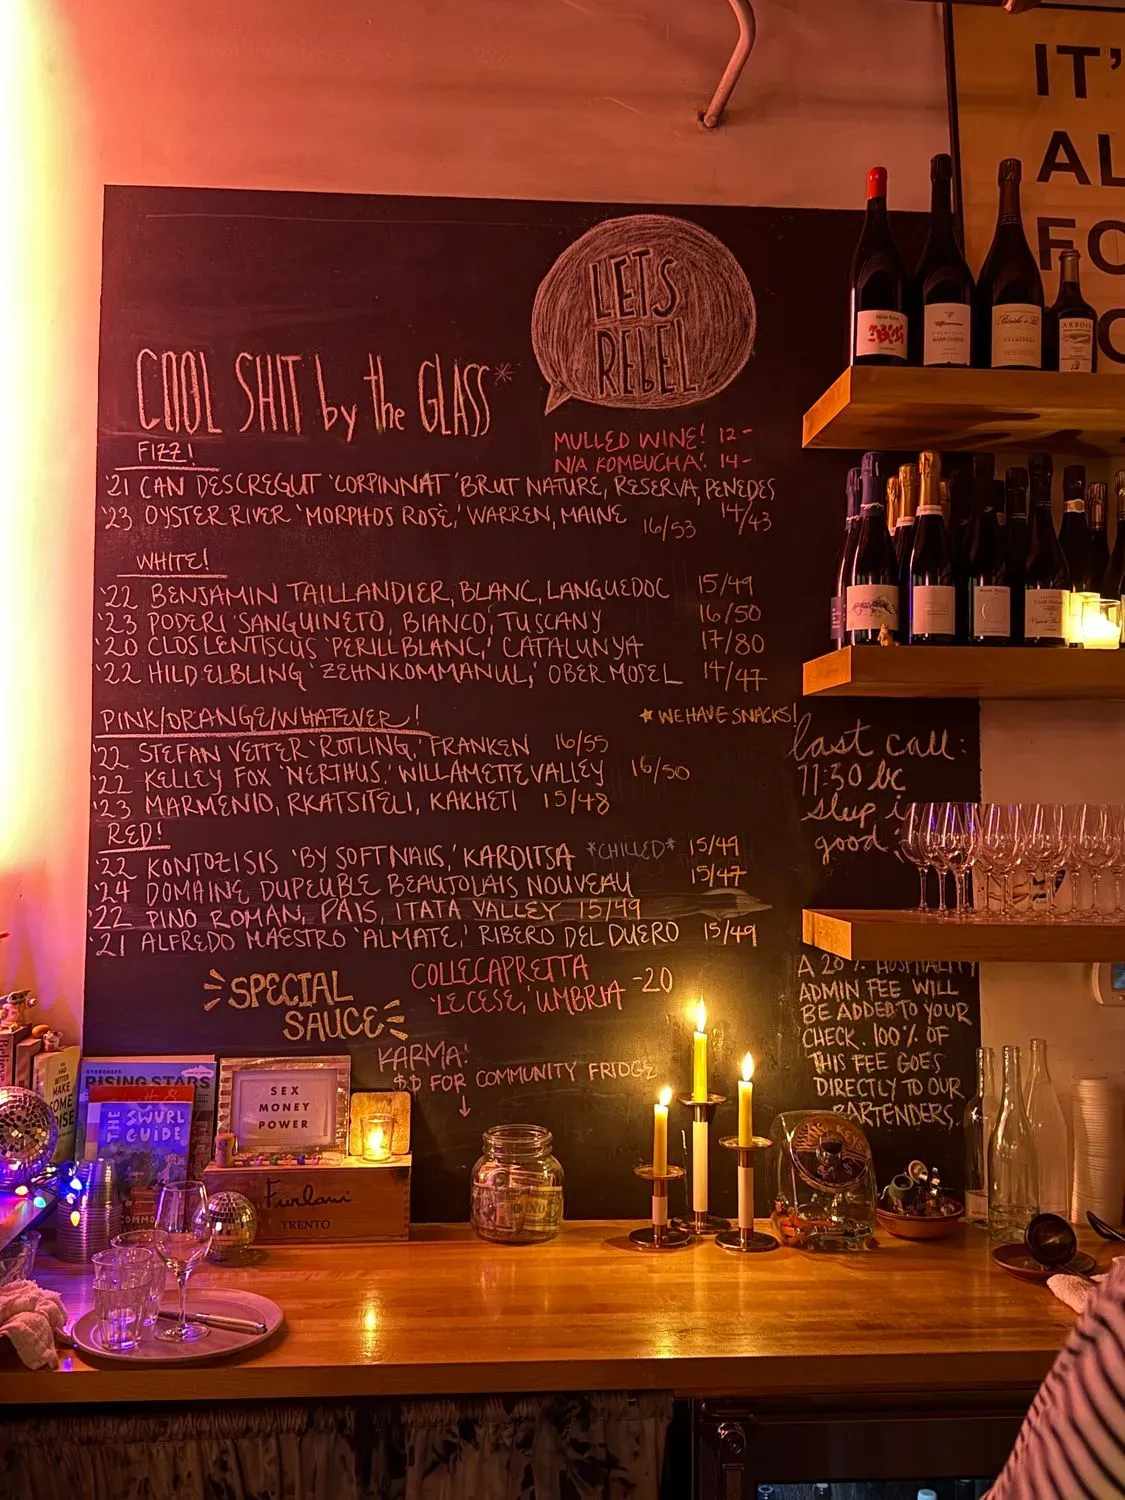 IT'
AL
FO
LETS
REBEL
COOL SHIT by the GLASS*
MULLED WINE! 12-
N/A KOMBUCHA! 14-
FIZZ!
'21 CAN DESCREGUT 'CORPINNAT' BRUT NATURE, RESERVA, PENEDES 14/43
'23 OYSTER RIVER 'MORPHOS ROSE,' WARREN, MAINE 16/53
WHITE!
'22 BENJAMIN TAILLANDIER, BLANC, LANGUEDOC 15/49
'23 PODERI SANGUINETO, BIANCO, TUSCANY 16/50
'20 CLOS LENTISCUS 'PERILL BLANC,' CATALUNYA 17/80
'22 HILD ELBLING 'ZEHNKOMMANUL,' OBER MOSEL 14/47
PINK/ORANGE/WHATEVER!
★ WE HAVE SNACKS!
'22 STEFAN VETTER 'ROTLING,' FRANKEN 16/55
'22 KELLEY FOX 'NERTHUS,' WILLAMETTE VALLEY 16/50
'23 MARMENIO, RKATSITELI, KAKHETI 15/48
RED!
'22 KONTOZISIS 'BY SOFT NAILS,' KARDITSA *CHILLED* 15/49
'24 DOMAINE DUPEUBLE BEAUJOLAIS NOUVEAU 15/47
'22 PINO ROMAN, PAIS, ITATA VALLEY 15/49
'21 ALFREDO MAESTRO 'ALMATE,' RIBERO DEL DUERO 15/49
SPECIAL
SAUCE
COLLECAPRETTA
'LE CESE,' UMBRIA -20
KARMA!
$$ FOR COMMUNITY FRIDGE
last call:
11:30 bc
sleep is
good
A 20% HOSPITALITY
ADMIN FEE WILL
BE ADDED TO YOUR
CHECK. 100% OF
THIS FEE GOES
DIRECTLY TO OUR
BARTENDERS.
ARBOIS
STARCHEFS
RISING STARS
THE SWURL
GUIDE
SEX
MONEY
POWER
Furlani
TRENTO